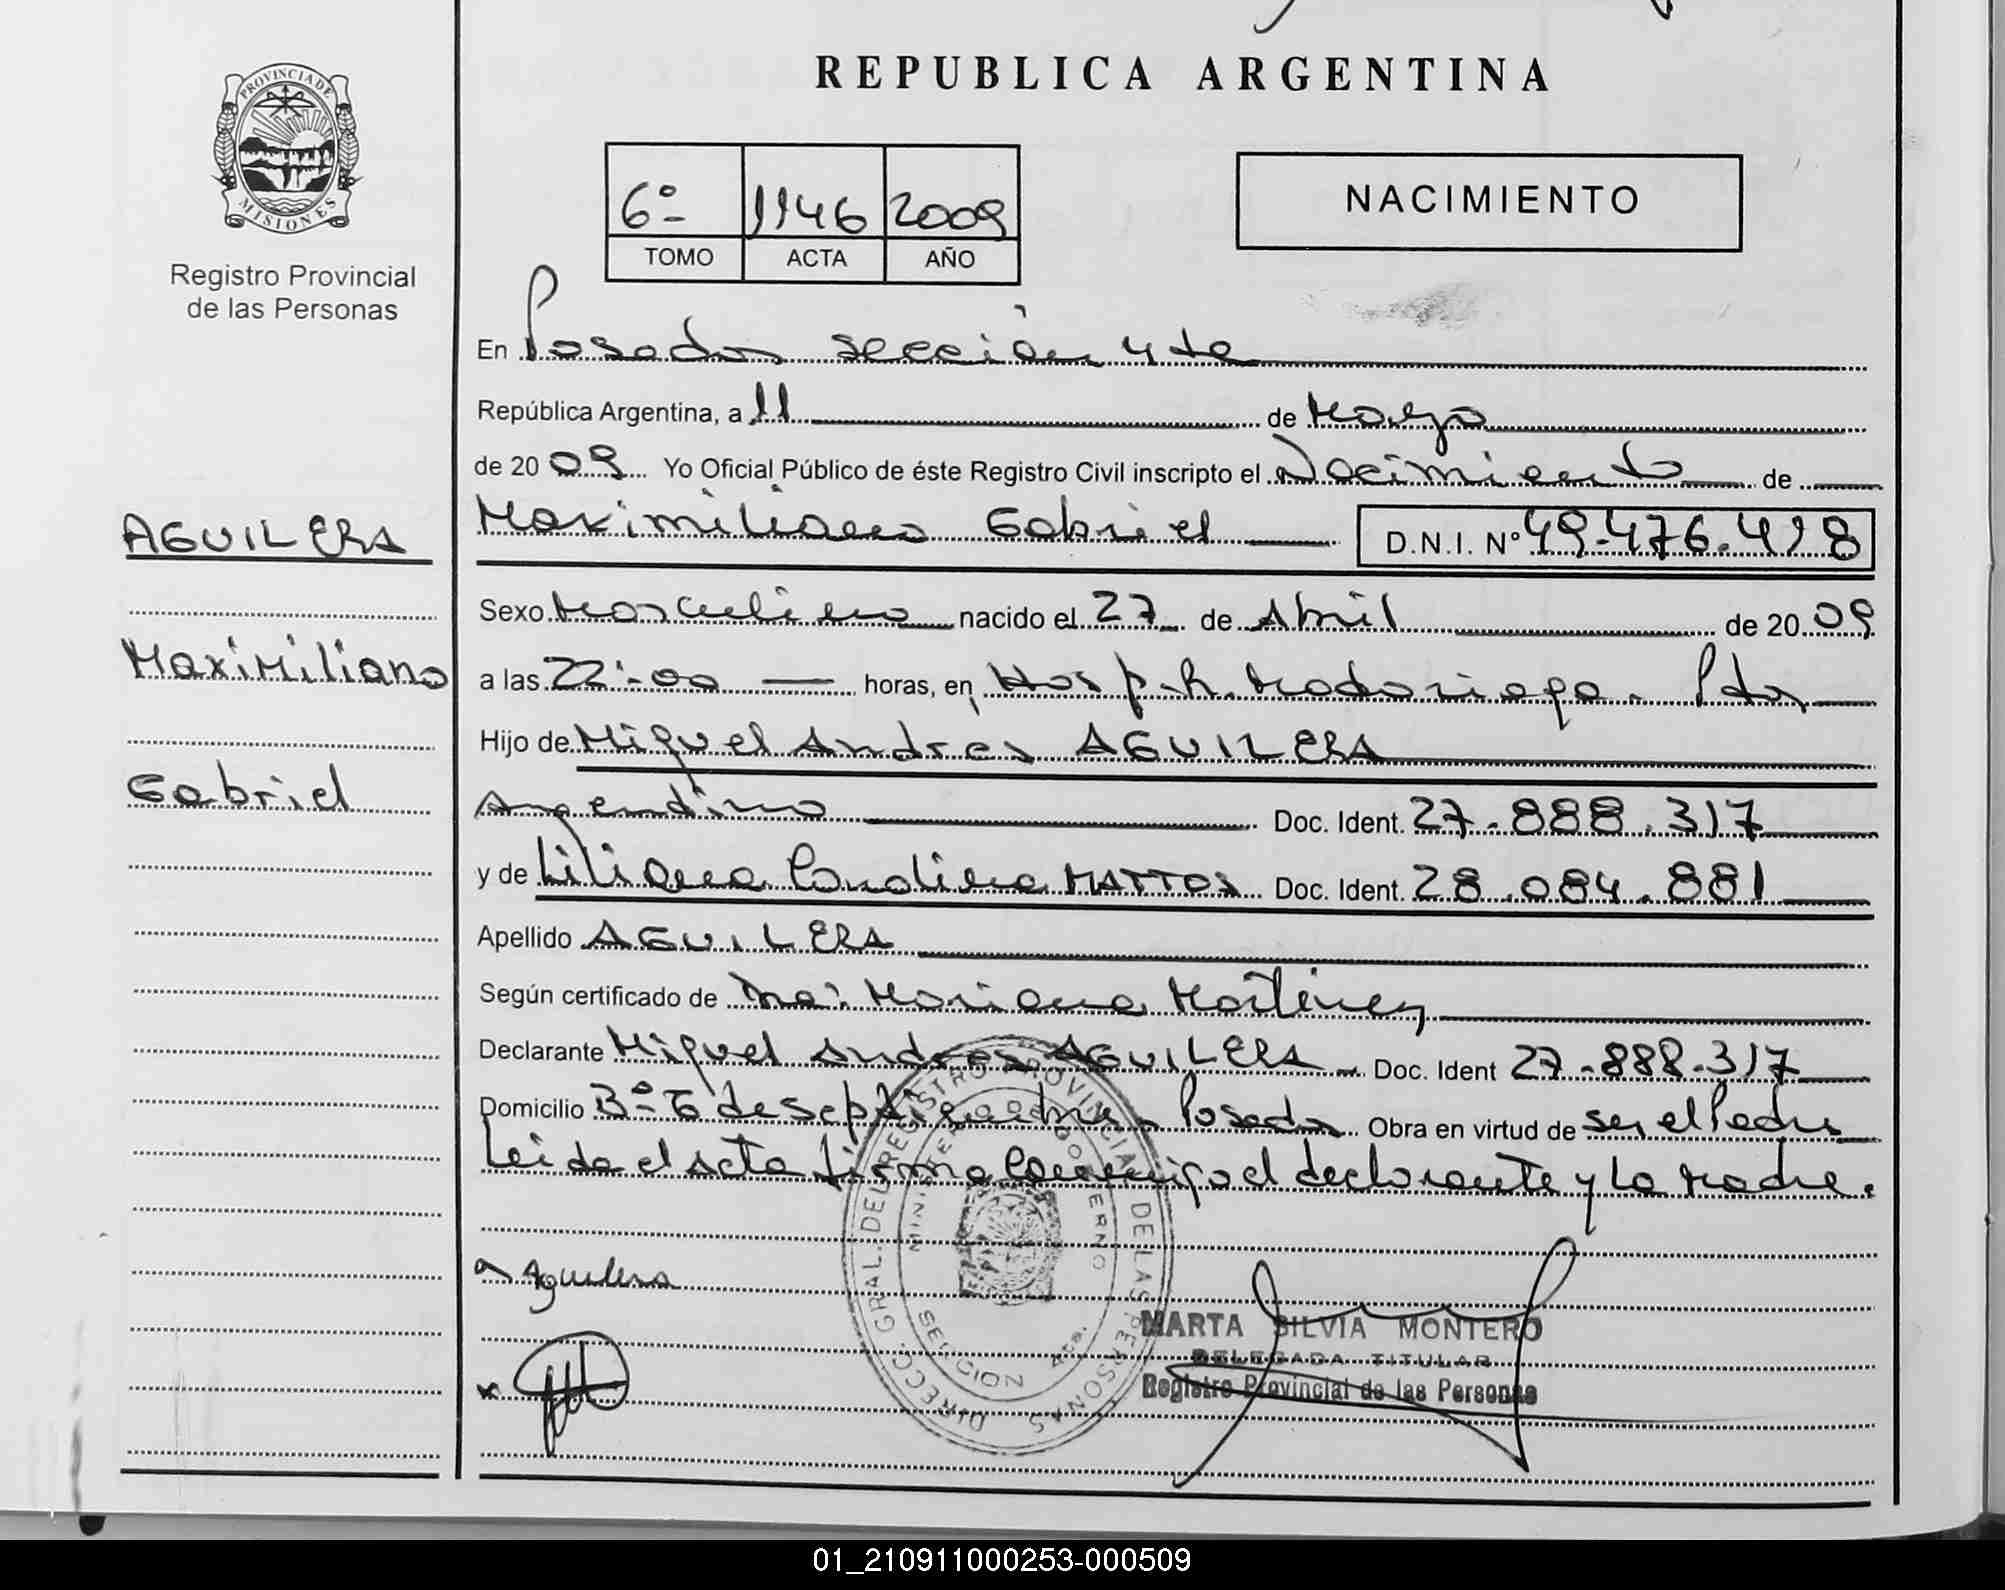 REPUBLICA ARGENTINA
PROVINCIA DE MISIONES
Registro Provincial
de las Personas
6º 1146 2009
TOMO ACTA AÑO
NACIMIENTO
En Posadas sección 4ta
República Argentina, a 11 de Mayo
de 2009 Yo Oficial Público de éste Registro Civil inscripto el Nacimiento de
Maximiliano Gabriel D.N.I. Nº 49.476.418
AGUILERA
Maximiliano
Gabriel
Sexo Masculino nacido el 27 de Abril de 2009
a las 22:00 horas, en Hosp. R. Madariaga. Pdas
Hijo de Miguel Andrés AGUILERA
Argentino Doc. Ident. 27.888.317
y de Liliana Carolina MATTOS Doc. Ident. 28.084.881
Apellido AGUILERA
Según certificado de Mariana Martinez
Declarante Miguel Andres AGUILERA Doc. Ident 27.888.317
Domicilio Bº 6 de Septiembre Posadas Obra en virtud de ser el Padre
Leida el acta firma conmigo el declarante y la madre.
Aguilera
DIRECC. GRAL. DEL REGISTRO PROVINCIAL DE LAS PERSONAS
MINISTERIO DE GOBIERNO
SECCION 4ta.
MARTA SILVIA MONTERO
DELEGADA TITULAR
Registro Provincial de las Personas
01_210911000253-000509